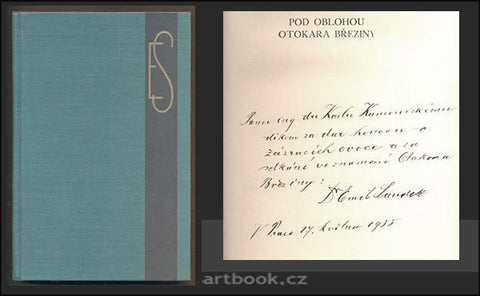 ES
POD OBLOHOU
OTOKARA BŘEZINY
Panu ing dru Karlu Kamenickému
díkem za dar hovoru o
zázracích ovoce a za
setkání ve znamení Otokara
Březiny:
Dr Emil Saudek
V Praze 17. května 1935
artbook.cz